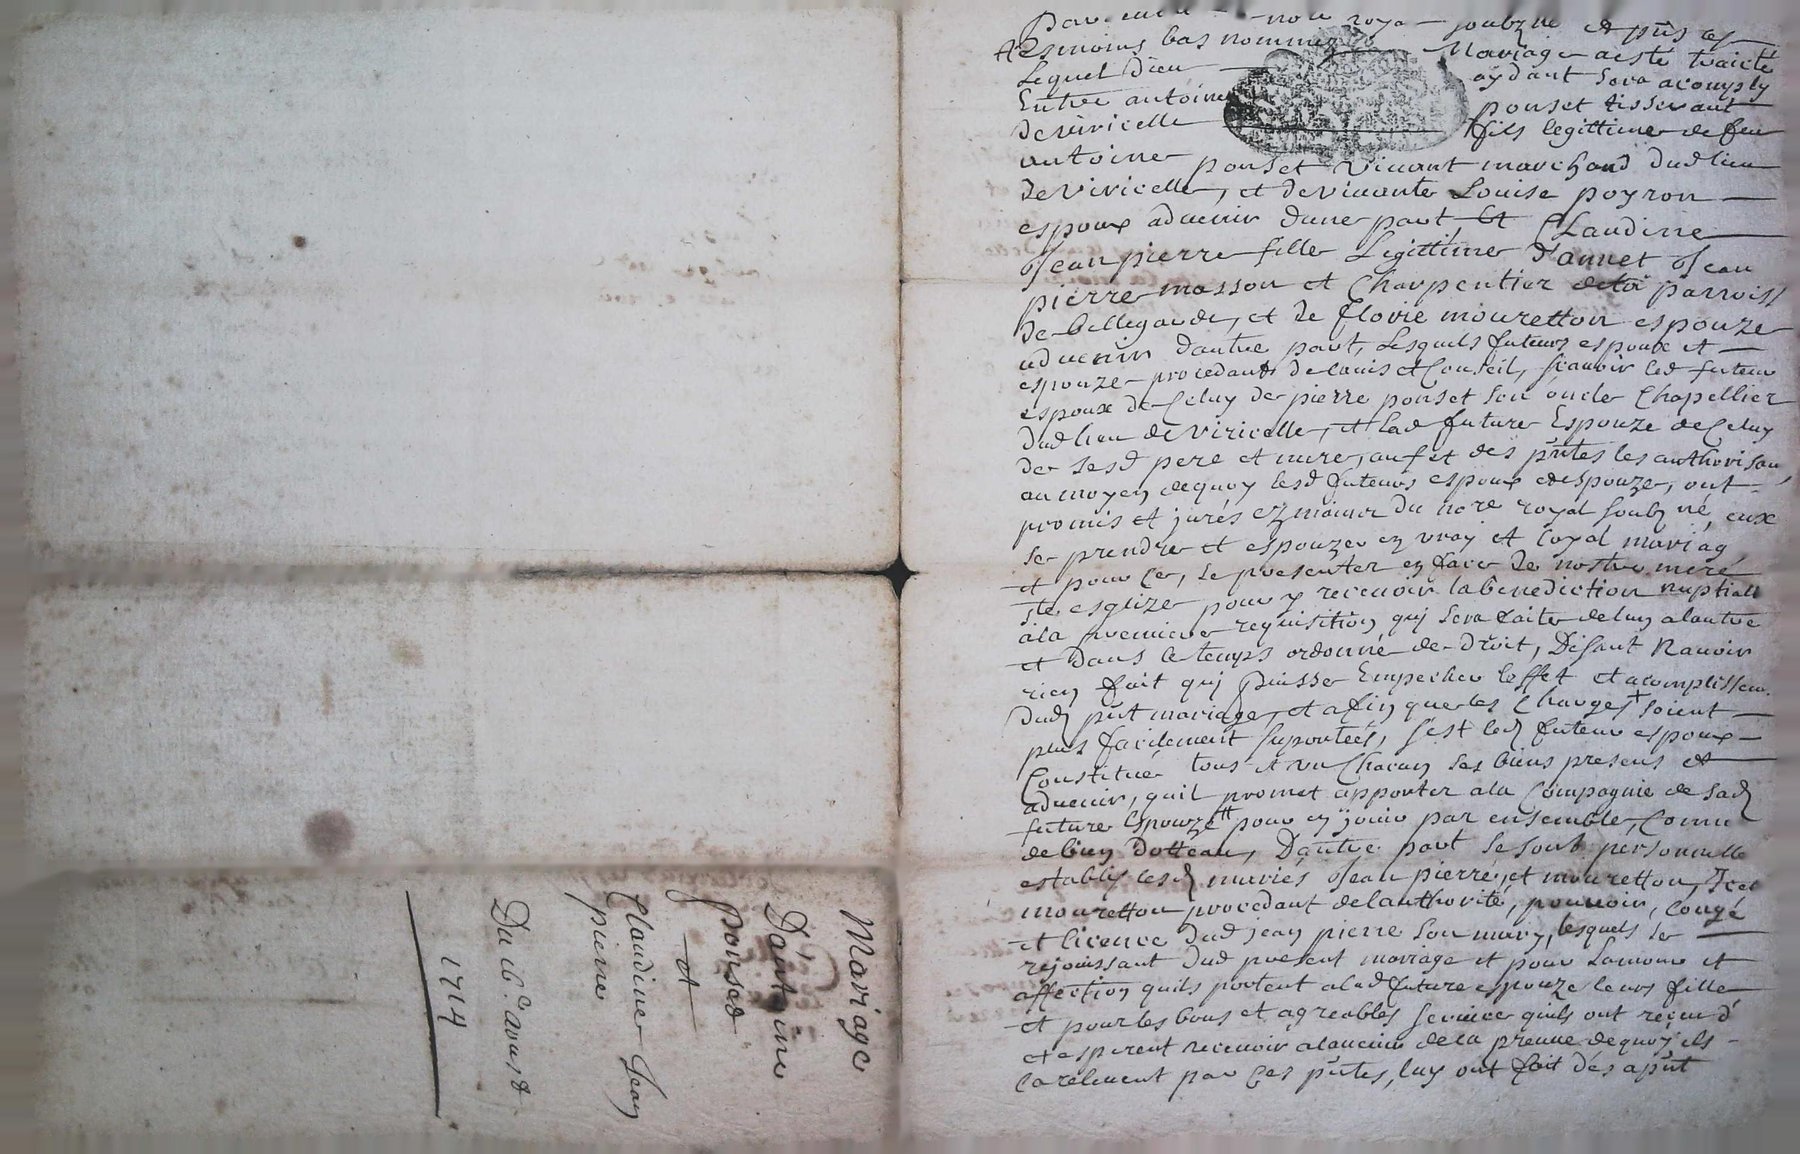 Mariage
D'antoine
ponsad
et
Claudine Jean
pierre
Du 16e aoust
1714
royal soubzné et
tesmoins bas nommez Mariage a esté traicté
Lequel Dieu aydant sera acomply
Entre antoine ponset tisserant
de viricelle fils legittime de feu
antoine ponset vivant marchand dud lieu
de viricelle, et de vivante Louise poyron
espoux advenir dune part, Et Claudine
Jean pierre fille Legittime d'annet Jean
pierre masson et Charpentier de la parroiss
de bellegarde, et de florie mouretton espouze
advenir dautre part, Lesquels futeurs espoux et
espouze procedant de lavis et Conseil, scavoir led futeur
espoux de Celuy de pierre ponset son oncle Chapellier
Dud lieu de viricelle, et lad future Espouze de Celuy
de sesd pere et mere, auf et des pntes les authorisan
au moyen dequoy lesd futeurs espoux et espouze, ont
promis et jurés ez mains du nore royal soubz né, eux
se prendre et espouzer en vray et loyal mariag
et pour ce, se presenter en face de nostre mere
ste esglize pour y recevoir la benediction nuptiall
a la premiere requisition quj sera faite de lun a lautre
et dans le temps ordonné de droit, Disant Navoir
rien fait quj puisse Empecher leffet et acomplissem
dud pnt mariage, et afin que les Charges soient
plus facilement suportées, sest led futeur espoux
Constitué tous et un Chacun ses biens presens et
advenir, quil promet apporter a la Compagnie de sad
future Espouze pour en joüir par ensemble, Comme
de bien Dotteau, Dautre part se sont personnelle
establis lesd mariés Jean pierre, et mouretton, Icel
mouretton procedant de lauthorité, pouvoir, Congé
et licence dud jean pierre son mary, lesquels se
rejouissant dud present mariage et pour Lamour et
affection quils portent a lad future espouze leur fille
et pour les bons et agreables service quils ont reçeu d'
et esperent recevoir a ladvenir de la preuve de quoy ils
la relevent par Ces pntes, luy ont fait dés apnt